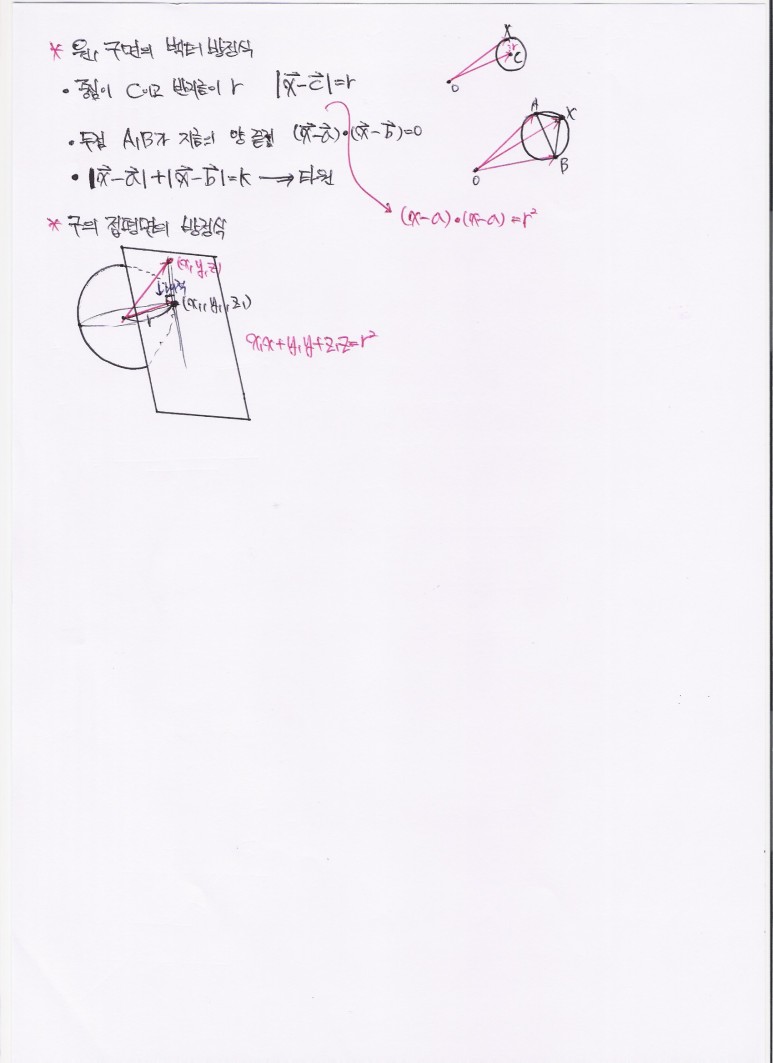 * 원, 구면의 벡터 방정식
• 중심이 C이고 반지름이 r |x⃗-c⃗|=r
• 두점 A,B가 지름의 양 끝점 (x⃗-a⃗)•(x⃗-b⃗)=0
• |x⃗-a⃗|+|x⃗-b⃗|=k → 타원
(x-a)•(x-a)=r²
* 구의 접평면의 방정식
(x,y,z)
(x₁,y₁,z₁)
r
x₁x+y₁y+z₁z=r²
X
r
C
O
A
X
B
O